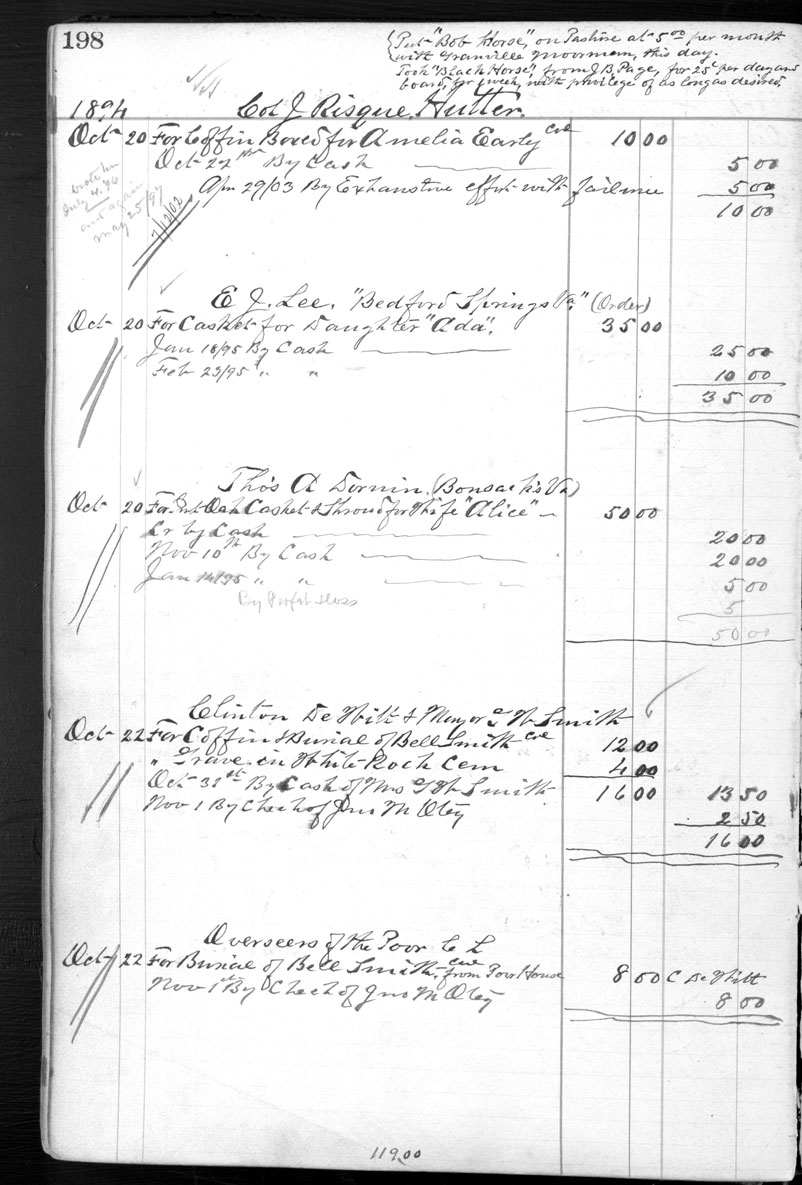 198
Put "Bob Horse," on Pasture at 5 00 per month
with Granville Moorman, this day.
Took "Black Horse," from J.B. Page, for 25¢ per day and
board, per week, with privilege of as long as desired.
1894 Col J. Risque Hutter.
Oct 20 For Coffin Boxed for Amelia Early 10 00
Oct 22 By Cash 5 00
Apr 29/03 By Exhaustive effort with failure 5 00
10 00
wrote him
July 4. 96
and again
May 25/97
7/12/02
E J. Lee. "Bedford Springs Va." (Order)
Oct 20 For Casket for Daughter "Ada". 35 00
Jan 18/95 By Cash 25 00
Feb 23/95 " " 10 00
35 00
Thos A Dornin (Bonsack's Va)
Oct 20 For Oak Casket & Shroud for Wife "Alice" 50 00
Cr by Cash 20 00
Nov 10th By Cash 20 00
Jan 14/95 " " 5 00
By Profit & Loss 5
50 00
Clinton DeWitt & Mayor G W Smith
Oct 22 For Coffin & Burial of Bell Smith 12 00
" Grave in White Rock Cem 4 00
Oct 31st By Cash of Mrs G W Smith 16 00 13 50
Nov 1 By Check of Jno M Otey 2 50
16 00
Overseers of the Poor C L
Oct 22 For Burial of Bell Smith from Poor House 8 00 C DeWitt
Nov 1st By Check of Jno M Otey 8 00
119.00